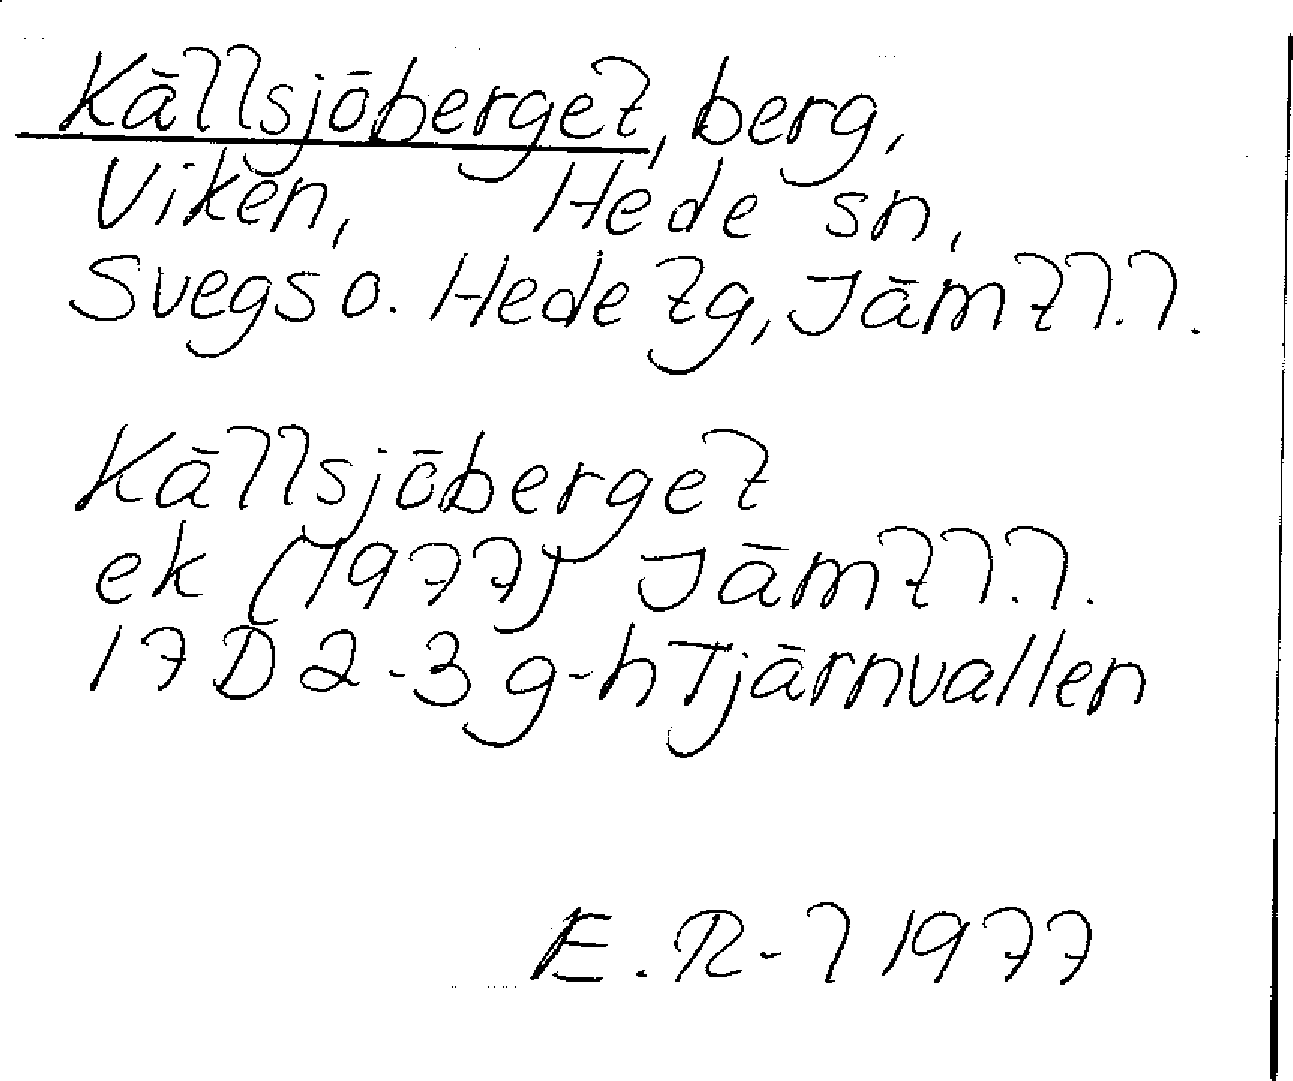 Källsjöberget, berg,
Viken, Hede sn,
Svegs o. Hede tg, Jämtl.l.
Källsjöberget
ek (1977) Jämtl.l.
17D 2-3 g-h Tjärnvallen
E. R-l 1977